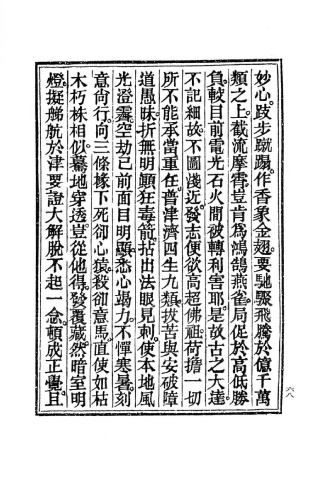 妙心。跂步蹴蹋。作香象金翅。要馳驟飛騰於億千萬
類之上。截流摩霄。豈肯爲鴻鵠燕雀。局促於高低勝
負。較目前電光石火間被轉利害耶。是故古之大達。
不記細故。不圖淺近。發志便欲高超佛祖。荷擔一切
所不能承當重任。普津濟四生九類。拔苦與安。破障
道愚昧。折無明顚狂毒箭。拈出法眼見刺。使本地風
光澄霽。空劫已前面目明顯。悉心竭力。不憚寒暑。刻
意尙行。向三條椽下死却心猿。殺却意馬。直使如枯
木朽株相似。驀地穿透。豈從他得。發覆藏。然暗室明
燈。擬艤航於津要。證大解脫。不起一念。頓成正覺。且
六八